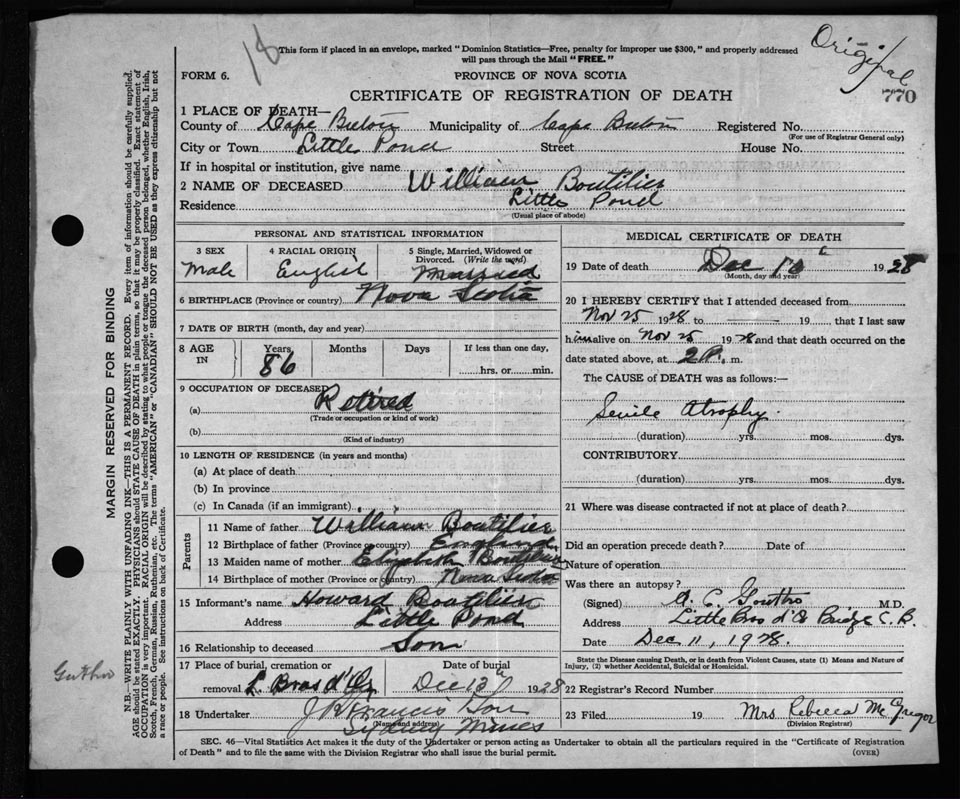 18
This form if placed in an envelope, marked "Dominion Statistics—Free, penalty for improper use $300," and properly addressed
will pass through the Mail "FREE."
Original
770
FORM 6.
PROVINCE OF NOVA SCOTIA
CERTIFICATE OF REGISTRATION OF DEATH
1 PLACE OF DEATH—
County of Cape Breton Municipality of Cape Breton Registered No.
(For use of Registrar General only)
City or Town Little Pond Street House No.
If in hospital or institution, give name
2 NAME OF DECEASED William Boutilier
Residence Little Pond
(Usual place of abode)
PERSONAL AND STATISTICAL INFORMATION
3 SEX 4 RACIAL ORIGIN 5 Single, Married, Widowed or
Divorced. (Write the word)
Male English Married
6 BIRTHPLACE (Province or country) Nova Scotia
7 DATE OF BIRTH (month, day and year)
8 AGE IN Years Months Days If less than one day,
86 hrs. or min.
9 OCCUPATION OF DECEASED
(a) Retired
(Trade or occupation or kind of work)
(b)
(Kind of industry)
10 LENGTH OF RESIDENCE (in years and months)
(a) At place of death
(b) In province
(c) In Canada (if an immigrant)
Parents
11 Name of father William Boutilier
12 Birthplace of father (Province or country) England
13 Maiden name of mother Elizabeth Boutilier
14 Birthplace of mother (Province or country) Nova Scotia
15 Informant's name Howard Boutilier
Address Little Pond
16 Relationship to deceased Son
17 Place of burial, cremation or Date of burial
removal L. Bras d'Or Dec 12th 1928
18 Undertaker J. Francis Son
(Name and address)
Sydney Mines
MEDICAL CERTIFICATE OF DEATH
19 Date of death Dec 10th 1928
(Month, day and year)
20 I HEREBY CERTIFY that I attended deceased from
Nov 25 1928 to —— 19 that I last saw
him alive on Nov 25 1928 and that death occurred on the
date stated above, at 2 P. m.
The CAUSE OF DEATH was as follows:—
Senile Atrophy.
(duration) yrs. mos. dys.
CONTRIBUTORY
(duration) yrs. mos. dys.
21 Where was disease contracted if not at place of death?
Did an operation precede death? Date of
Nature of operation
Was there an autopsy?
(Signed) M.D.
Address Little Bras d'Or Bridge C.B.
Date Dec 11, 1928.
State the Disease causing Death, or in death from Violent Causes, state (1) Means and Nature of
Injury, (2) whether Accidental, Suicidal or Homicidal.
22 Registrar's Record Number
23 Filed 19 Mrs Rebecca McGregor
(Division Registrar)
SEC. 46—Vital Statistics Act makes it the duty of the Undertaker or person acting as Undertaker to obtain all the particulars required in the "Certificate of Registration
of Death" and to file the same with the Division Registrar who shall issue the burial permit. (OVER)
MARGIN RESERVED FOR BINDING
N.B.—WRITE PLAINLY WITH UNFADING INK—THIS IS A PERMANENT RECORD. Every item of information should be carefully supplied.
AGE should be stated EXACTLY. PHYSICIANS should STATE CAUSE OF DEATH in plain terms, so that it may be properly classified. Exact statement of
OCCUPATION is very important. RACIAL ORIGIN will be described by stating to what people or tongue the deceased person belonged, whether English, Irish,
Scotch, French, German, Russian, Ruthenian, etc. The terms "AMERICAN" or "CANADIAN" SHOULD NOT BE USED as they express citizenship but not
a race or people. See instructions on back of Certificate.